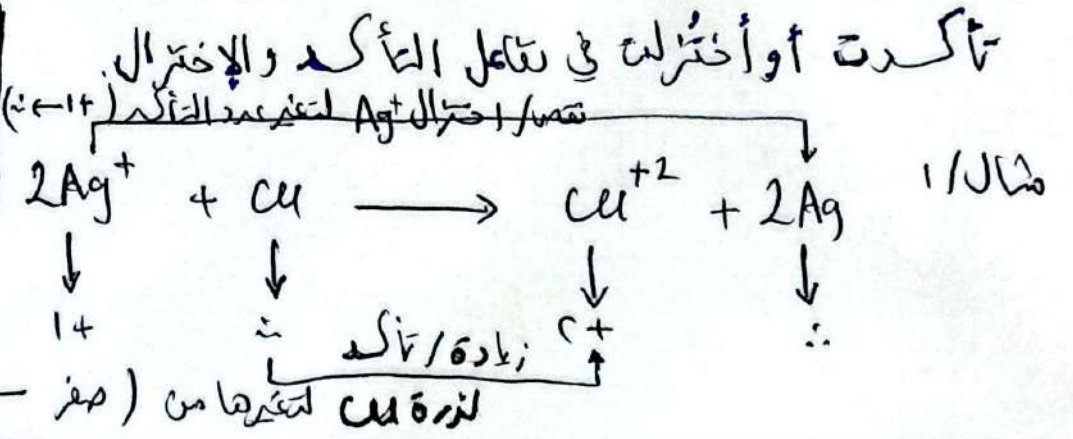 تأكسدت أو أُختُزلت في تفاعل التأكسد والإختزال.
نقص/اختزال Ag⁺ لتغير عدد التأكسد (+1←∴)
مثال/1 2Ag⁺ + Cu ⟶ Cu⁺² + 2Ag
1+ ∴ ٢+ ∴
زيادة/تأكسد
لذرة Cu لتغيرها من (صفر –